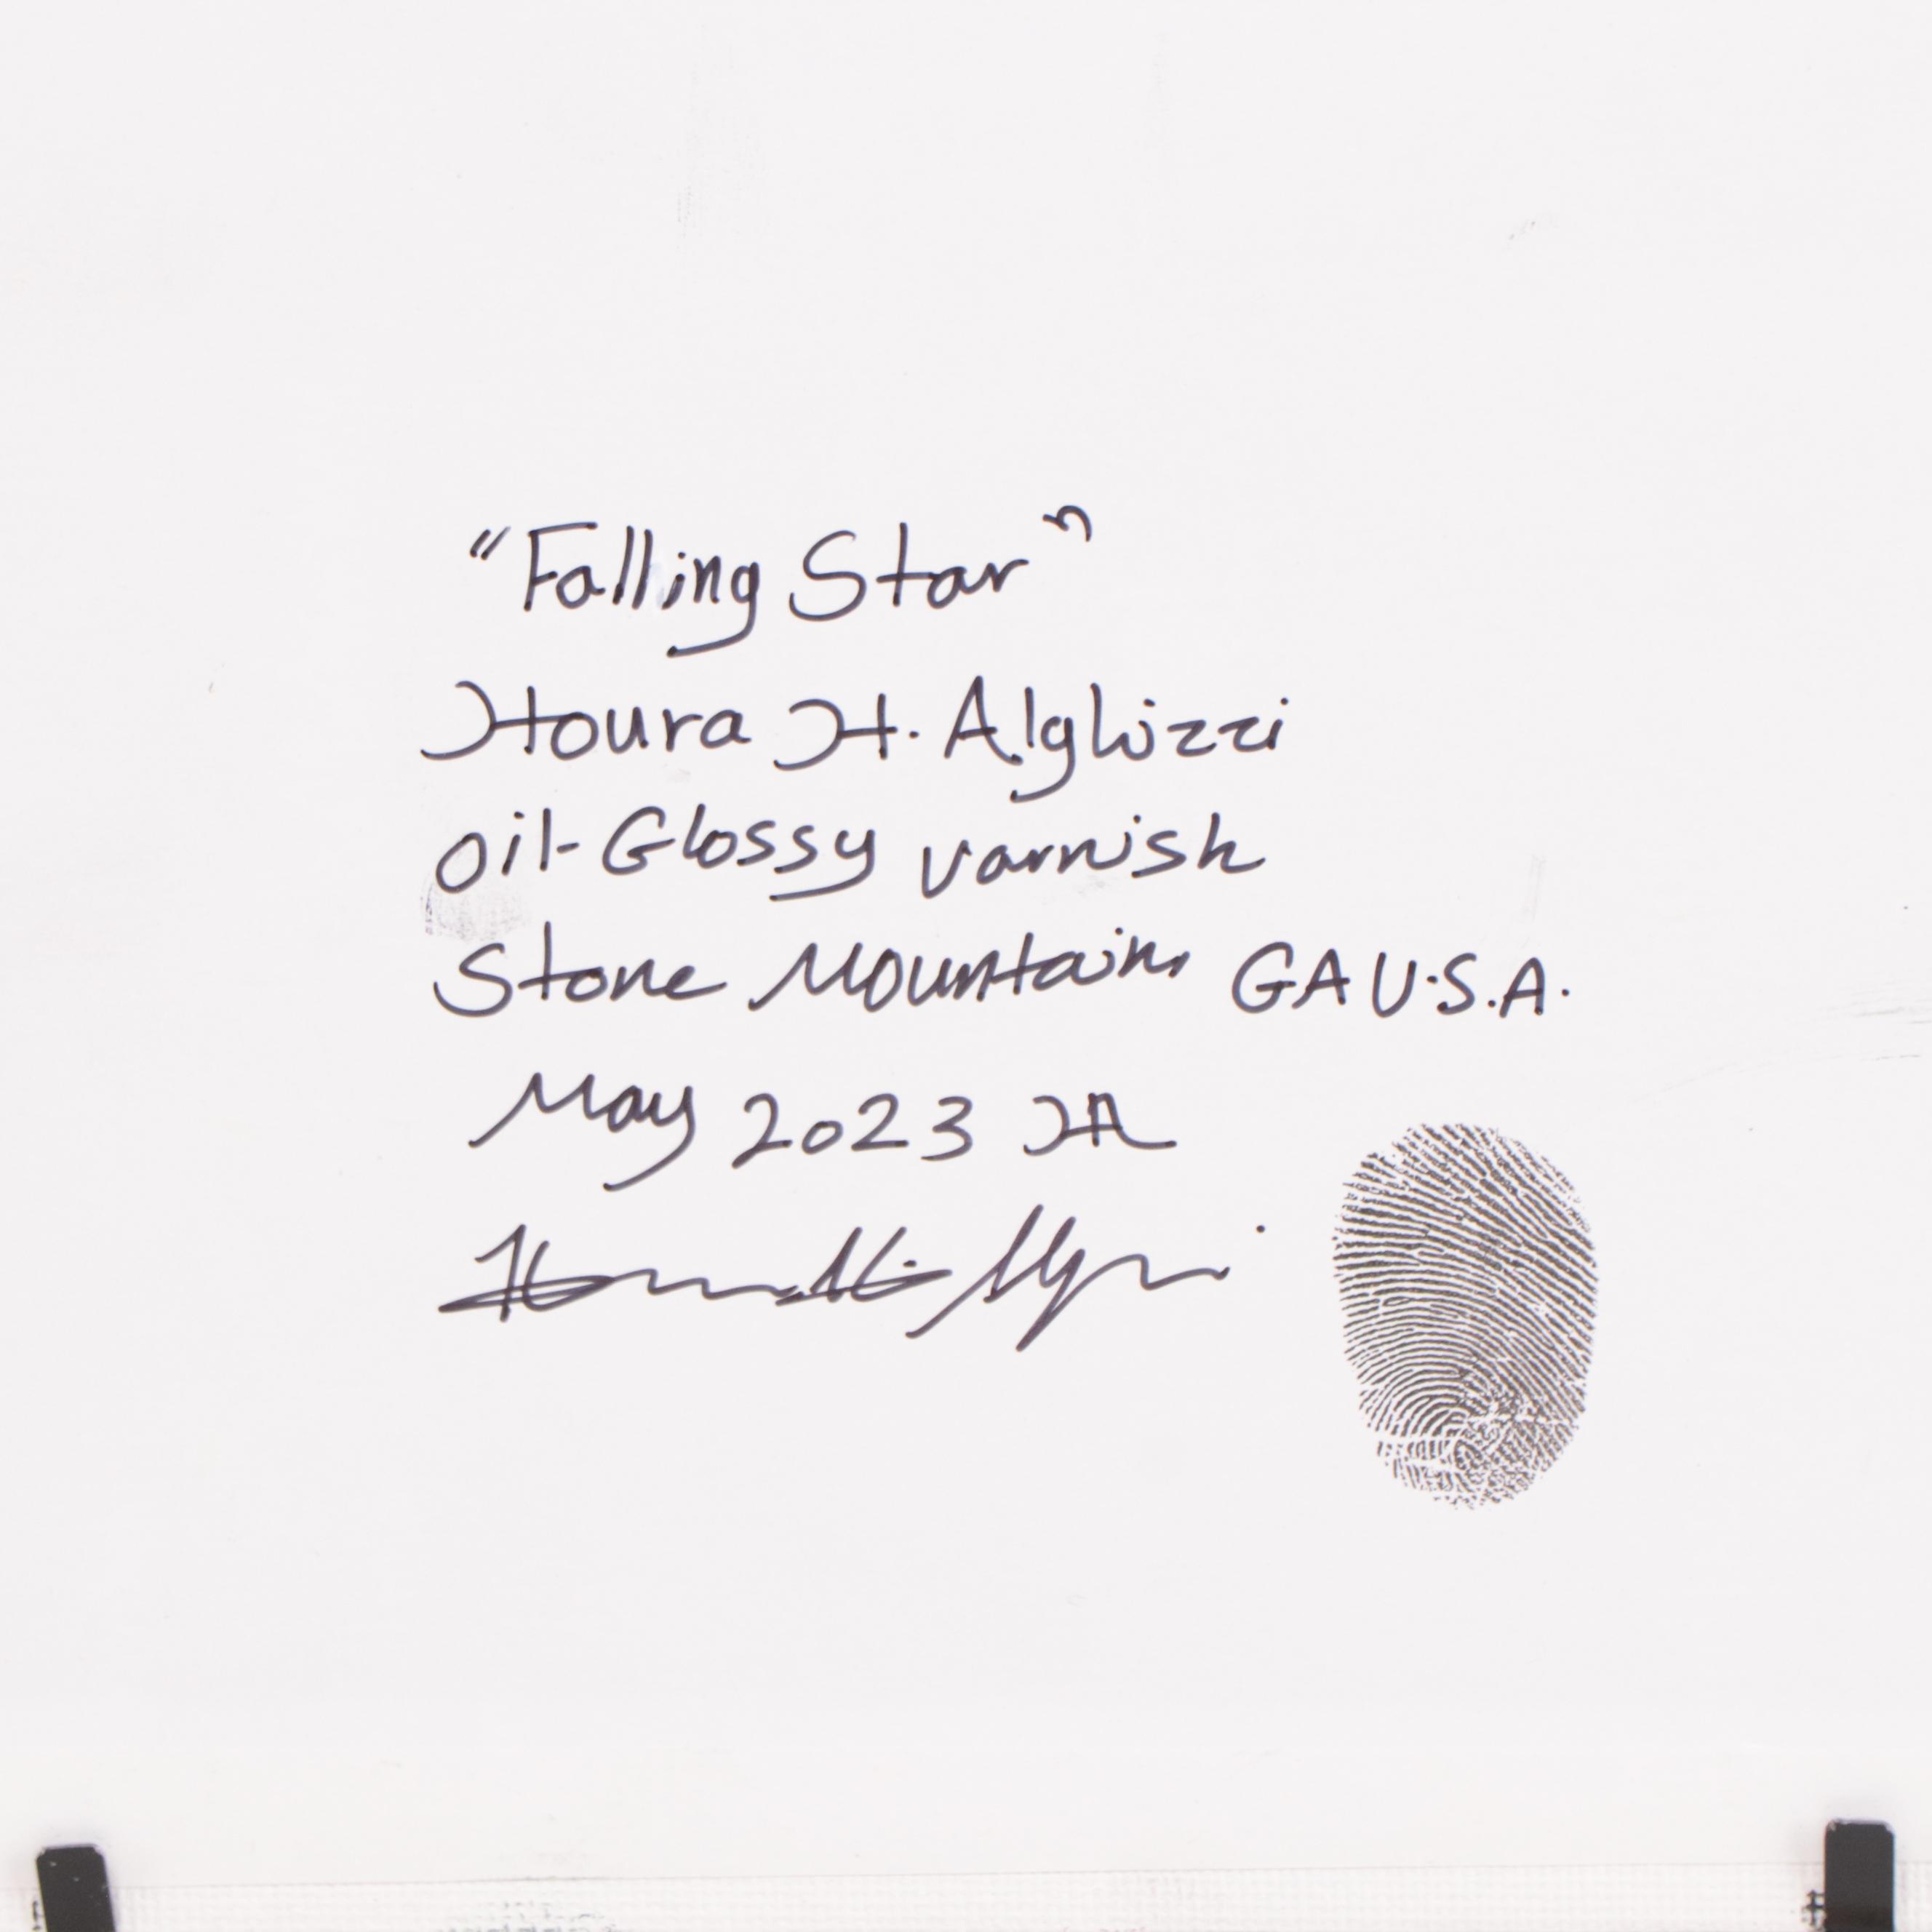 "Falling Star"
Houra H. Alghizzi
oil-Glossy varnish
Stone Mountain, GA U.S.A.
May 2023 HA